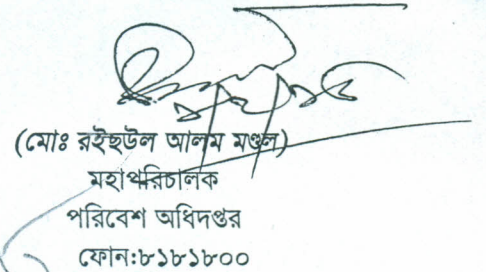 (মোঃ রইছউল আলম মণ্ডল)
মহাপরিচালক
পরিবেশ অধিদপ্তর
ফোন:৮১৮১৮০০